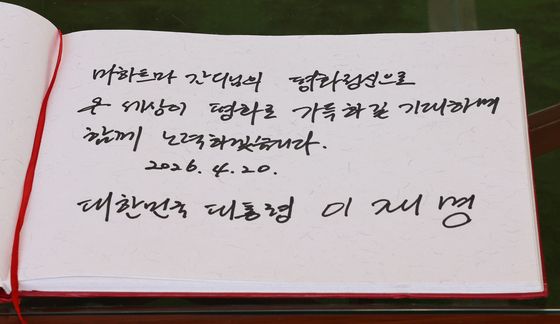 마하트마 간디님의 평화정신으로
온 세상이 평화로 가득하길 기대하며
함께 노력하겠습니다.
2026. 4. 20.
대한민국 대통령 이재명